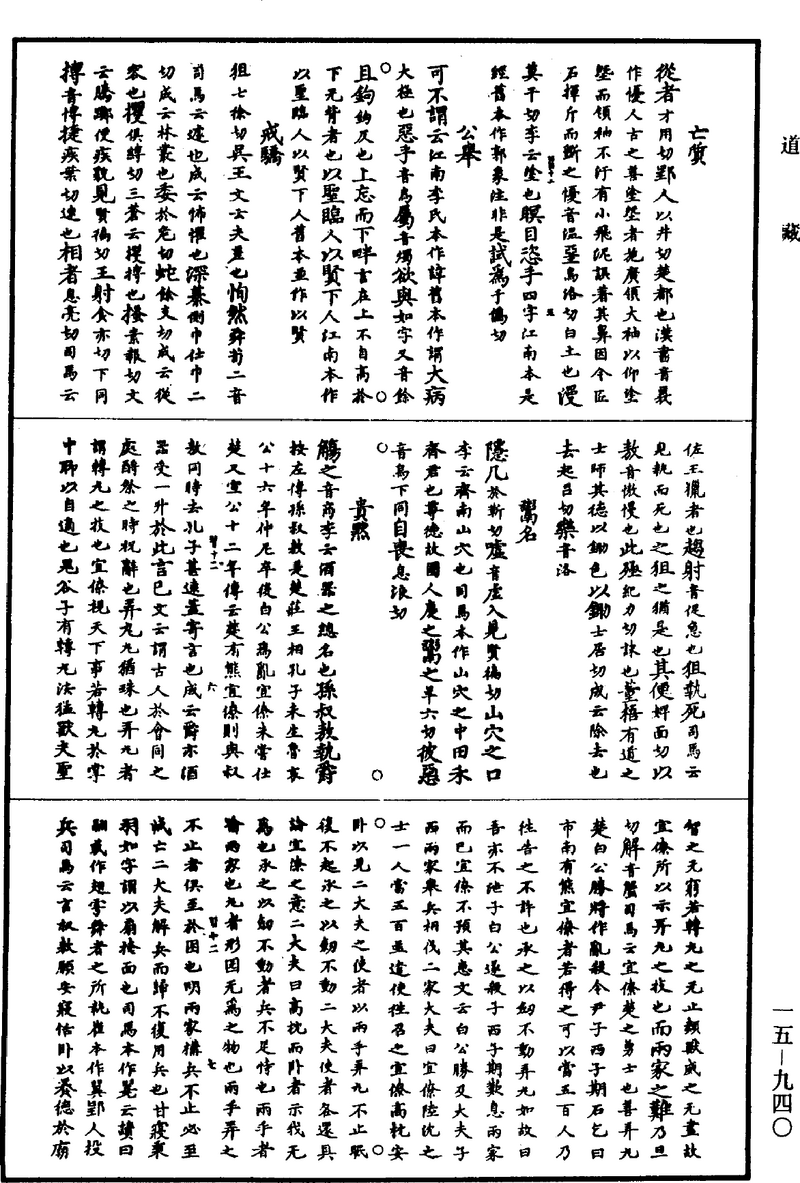 道藏
亡質
從者才用切郢人以井切楚都也漢書音義
作㦬人古之善塗塈者施廣領大袖以仰塗
塈而領袖不汙有小飛泥誤著其鼻因令匠
石揮斤而斵之㦬音溫堊烏洛切白土也漫
莫干切李云塗也瞑目恣手四字江南本是
經舊本作郭象注非是試爲于僞切
公舉
可不謂云江南李氏本作諱舊本作謂大病
大極也惡乎音烏屬音燭欲與如字又音餘
且鉤鉤反也上忘而下畔言在上不自高於
下无背者也以聖臨人以賢下人江南本作
以聖臨人以賢下人舊本並作以賢
戒驕
狙七徐切吳王文云夫差也恂然舜荀二音
司馬云遽也成云怖懼也深蓁側巾仕巾二
切成云林叢也委於危切蛇餘支切成云從
容也攫俱縛切三蒼云攫搏也搔素報切文
云騰躑便疾皃見賢徧切王射食亦切下同
搏音博捷疾葉切速也相者息亮切司馬云
佐王獵者也趨射音促急也狙執死司馬云
見執而死也之狙之猶是也其便婢面切以
敖音傲慢也此殛紀力切誅也董梧有道之
士師其德以鋤色以鋤士居切成云除去也
去起呂切樂音洛
鬻名
隱几於靳切噓音虛入見賢徧切山穴之口
李云齊南山穴也司馬本作山穴之中田禾
齊君也尊德故國人慶之鬻之羊六切彼惡
音烏下同自喪息浪切
貴默
觴之音商李云酒器之總名也孫叔敖執爵
按左傳孫叔敖是楚莊王相孔子未生魯哀
公十六年仲尼卒後白公爲亂宜僚未嘗仕
楚又宣公十二年傳云楚有熊宜僚則與叔
敖同時去孔子甚遠蓋寄言也成云爵亦酒
器受一升於此言已文云謂古人於會同之
處酹祭之時祝辭也弄丸丸猶珠也弄丸者
謂轉丸之技也宜僚視天下事若轉丸於掌
中聊以自適也鬼谷子有轉丸法猛獸夫聖
智之无窮若轉丸之无止類獸威之无盡故
宜僚所以示弄丸之技也而兩家之難乃旦
切解音蟹司馬云宜僚楚之勇士也善弄丸
楚白公勝將作亂殺令尹子西子期石乞曰
市南有熊宜僚者若得之可以當五百人乃
往告之不許也承之以劒不動弄丸如故曰
吾亦不泄子白公遂殺子西子期歎息兩家
而已宜僚不預其患文云白公勝及大夫子
西兩家舉兵相伐二家大夫曰宜僚陸沈之
士一人當五百並遣使往召之宜僚高枕安
卧以見二大夫之使者以兩手弄丸不止眠
後不起承之以劒不動二大夫使者各還具
論宜僚之意二大夫曰高枕而卧者示我无
爲也承之以劒不動者兵不足恃也兩手者
喻兩家也丸者形圓无爲之物也兩手弄之
不止者俱至於困也明兩家構兵不止必至
滅亡二大夫解兵而歸不復用兵也甘寢秉
羽如字謂以扇掩面也司馬本作翣云讀曰
翿或作翅雩舞者之所執崔本作翼郢人投
兵司馬云言叔敖願安寢恬卧以養德於廟
一五—九四〇